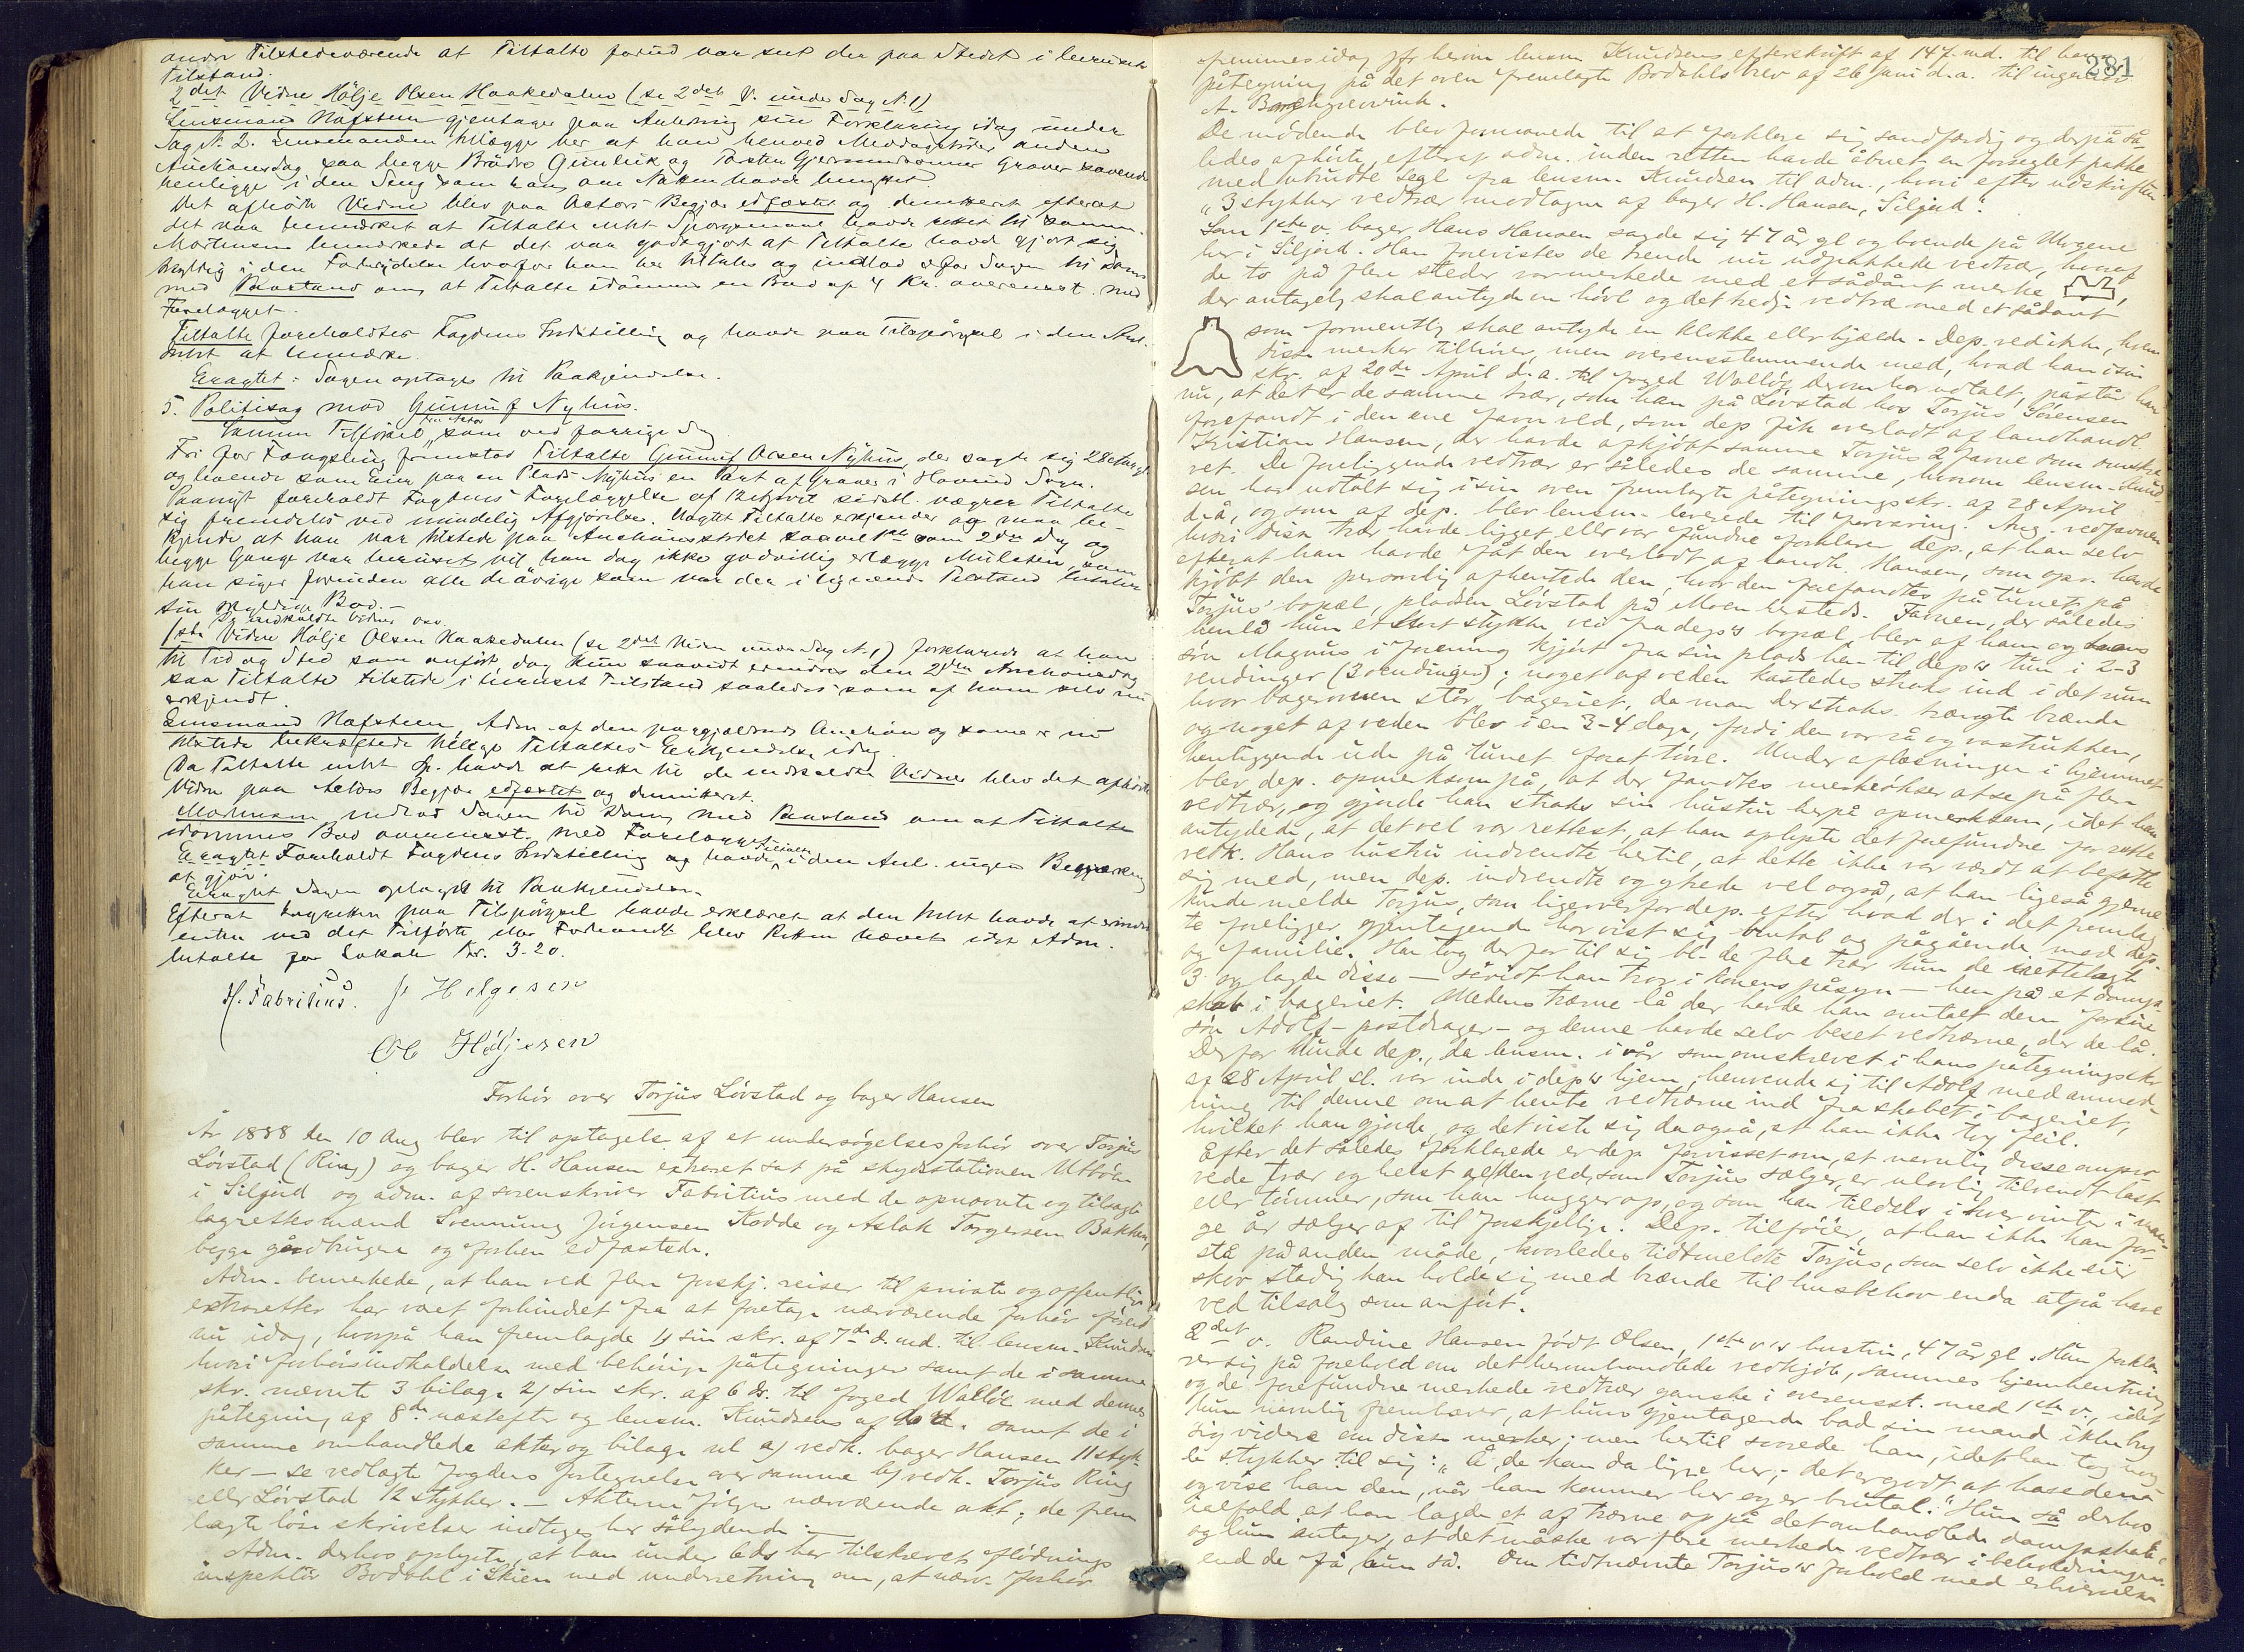 andre Tilstedeværende at Tiltalte forud var seet der paa Stedet i beruset
Tilstand.
2det Vidne Hölje Olsen Haakedalen (se 2det V. under Sag N. 1)
Lensmand Hafsteen gjentager paa Anledning sin Forklaring idag under
Sag N. 2. Lensmanden tillægger her at han henved Middagstider anden
Auctionsdag saa begge Brödre Gunleik og Torsten Gjermundsønner Graver sovende
henligge i den Seng som han om Natten havde benyttet
Det afhörte Vidne blev paa Actors Begjær edfæstet og demitteret efterat
det var bemærket at Tiltalte intet Spørgsmaal havde rettet til samme.
Mortensen bemærkede at det var godtgjort at Tiltalte havde gjort sig
skyldig i den Forbrydelse hvorfor han her tiltales og indlod derfor Sagen til Doms
med Paastand om at Tiltalte idømmes en Bod af 4 Kr. overensst. med
Forelægget.
Tiltalte foreholdtes Fogdens Indstilling og havde paa Tilspörgsel i den Anl.
Intet at bemærke.
Eragtet: Sagen optages til Paakjendelse.
5. Politisag mod Gunnuf Nyhus.
Samme Tilförsel som ved forrige Sag
Fri for Fængsling fremstod Tiltalte Gunnuf Olsen Nyhus, der sagde sig 28 Aar gl.
og boende som Eier paa en Plads Nyhus en Part af Graver i Hovind Sogn.
Paanyt foreholdt Fogdens Forelæggelse af 12 April sidstl. vægrer Tiltalte
sig fremdeles ved mindelig Afgjörelse. Uagtet Tiltalte erkjender og maa be-
kjende at han var tilstede paa Auctionsstedet saavel 1ste som 2den Dag og
begge Gange var beruset vil han dog ikke godvillig erlægge Mulcten, som
han siger forinden alle de övrige som var der i lignende Tilstand betaler
sin skyldige Bod.
De indkaldte Vidner var.
1ste Vidne Hölje Olsen Haakedalen (se 2det Vidne under Sag N. 1) forklarede at han
til Tid og Sted som anfört, dog kun saavidt erindres den 2den Auctionsdag
saa Tiltalte tilstede i beruset Tilstand saaledes som af ham selv nu
erkjendt.
Lensmand Hafsteen, Adm. af den paagjældende Auction og som er nu
tilstede bekræftede tillige Tiltaltes Erkjendelse idag
Da Tiltalte intet Sp. havde at rette til de indkaldte Vidner blev det afhörte
Vidne paa Actors Begjær edfæstet og demitteret.
Mortensen indlod Sagen til Doms med Paastand om at Tiltalte
idømmes Bod overensst. med Forelægget
Eragtet Foreholdt Fogdens Indstilling og havde Tiltalte i den Anl. ingen Begjæring
at gjöre.
Eragtet Sagen optages til Paakjendelse.
Efterat Lagretten paa Tilspörgsel havde erklæret at den Intet havde at erindre
enten ved det Tilförte eller Forhandl. blev Retten hævet idet Adm.
betalte for Lokale Kr. 3.20.
H. Fabritius. J. Helgesen
Ole Höljesen
Forhör over Torjus Lövstad og bager Hansen
År 1888 den 10 Aug blev til optagelse af et undersögelsesforhör over Torjus
Lövstad (Ring) og bager H. Hansen extraret sat på skydsstationen Utböen
i Siljord og adm. af sorenskriver Fabritius med de opnævnte og tilsagte
lagrettesmænd Svennung Jörgensen Kodde og Aslak Torgersen Bakken,
begge gårdbrugere og forhen edfæstede.
Adm. bemerkede, at han ved flere forskj. reiser til private og offentlige
extraretter har været forhindret fra at foretage nærværende forhör förend
nu idag, hvorpå han fremlagde 1/ sin skr. af 7de d. md. til lensm. Knudsen
hvori forhörsindkaldelse med behörige påtegninger samt de i samme
skr. nævnte 3 bilage 2/ sin skr. af 6 ds. til foged Wallöe med dennes
påtegning af 8de næstefter og lensm. Knudsens af samt de i
samme omhandlede akter og bilage nl a) vedk. bager Hansen 11 styk-
ker – se vedlagte fogdens fortegnelse over samme b) vedk. Torjus Ring
eller Lövstad 12 stykker. – Akterne fölger nærværende akt; de frem
lagte löse skrivelser indtages her sålydende:
Adm. derhos oplyste, at han under 6 ds har tilskrevet flödnings
inspektör Bødahl i Skien med underretning om, at nærv. forhör
281
fremmes idag jfr herom lensm Knudsens efterskrift af 14 f. md. til ham
påtegning på det oven fremlagte Bødahls brev af 26 juni d.a. til ingeniör
A. Borchgrevink.
De mödende blev formanede til at forklare sig sandfærdig og derpå så-
ledes afhörte, efterat adm. inden retten havde åbnet en forseglet pakke
med ubrudte segl fra lensm. Knudsen til adm., hvori efter udskriften
"3 stykker vedtrær modtagne af bager H. Hansen, Siljord".
Som 1ste v. bager Hans Hansen sagde sig 47 år gl og boende på Mogene
her i Siljord. Han forevistes de trende nu udpakkede vedtrær, hvoraf
de to på flere steder var merkede med et sådant merke,
der antagelig skal antyde en hövl og det tredje vedtræ med et sådant
som formentlig skal antyde en klokke eller bjælde. Dep. ved ikke, hvem
disse merker tilhörer, men overensstemmende med, hvad han i sin
skr. af 20de April d.a. til foged Wallöe derom har udtalt, påstår han
nu, at det er de samme trær, som han på Lövstad hos Torjus Sörensen
forefandt i den ene favn ved, som dep fik overladt af landhandl.
Kristian Hansen, der havde opkjöbt samme Torjus 2 favne som omskre-
vet. De foreliggende vedtrær er således de samme, hvorom lensm. Knud-
sen har udtalt sig i sin oven fremlagte påtegningsskr. af 28 April
d.å, og som af dep. blev lensm. leverede til forvaring. Ang. vedfavnen
hvori disse trær havde ligget eller var fundne forklarer dep., at han selv
efterat han havde fåt den overladt af landh. Hansen, som opr. havde
kjöbt den personlig afhentede den, hvor den forefandtes på tunet på
Torjus' bopæl, pladsen Lövstad på Moen her steds. Favnen, der således
henlå kun et kort stykke vei fra dep's bopæl, blev af ham og hans
sön Magnus i forening kjört fra sin plads hen til dep's tun i 2-3
vendinger (3 vendinger); noget af veden kastedes straks ind i det rum
hvor bagerovnen står, bageriet, da man der straks trængte brænde
og noget af veden blev i en 3-4 dage, fordi den var rå og vastrukken,
henliggende ude på tunet forat törre. Under aflæsningen i hjemmet
blev dep. opmerksom på, at der fandtes merkeökser at se på flere
vedtrær, og gjorde han straks sin hustru herpå opmerksom, idet han
antydede, at det vel var rettest, at han oplyste det forefundne for rette
vedk. Hans hustru indvendte hertil, at dette ikke var værdt at befatte
sig med, men dep. indvendte og ytrede vel også, at han ligeså gjerne
kunde melde Torjus, som ligeoverfor dep. efter hvad der i det fremlag-
te foreligger gjentagende har vist sig brutal og pågående mod dep.
og familie. Han tog derfor til sig bl. de flere trær kun de irettelagte
3 og lagde disse – såvidt han tror i konens påsyn – hen på et damp-
skab i bageriet. Medens trærne lå der havde han omtalt dem for sin
sön Adolf – postdrager – og denne havde selv beset vedtrærne, der de lå.
Derfor kunde dep., da lensm. i vår som omskrevet i hans påtegningsskr
af 28 April sl. var inde i dep's hjem, henvende sig til Adolf med anmod-
ning til denne om at hente vedtrærne ind fra skabet i bageriet,
hvilket han gjorde, og det viste sig da også, at han ikke tog feil.
Efter det således forklarede er dep forvisset om, at nemlig disse omprö-
vede trær og helst al den ved, som Torjus sælger, er ulovlig tilvendt last
eller tömmer, som han hugger op, og som han tildels i hver vinter i man-
ge år sælger af til forskjellige. Dep. tilföier, at han ikke kan for-
stå på anden måde, hvorledes tidtmeldte Torjus, som selv ikke eier
skov stadig kan holde sig med brænde til husbehov enda atpå have
ved tilsalg som anfört.
2det v. Randine Hansen födt Olsen, 1ste v's hustru, 47 år gl. Hun forkla-
rer sig på forehold om det heromhandlede vedkjöb, sammes hjemhentning
og de forefundne merkede vedtrær ganske i overensst. med 1ste v, idet
hun nemlig fremhæver, at hun gjentagende bad sin mand ikke bry
sig videre om disse merker; men hertil svarede han, idet han tog nog-
le stykker til sig: "Å, de kan da ligge her; det er godt at have dem
og vise han dem, når han kommer her og er brutal." Hun så derhos
ialfald at han lagde et af trærne op på det omhandlede dampskab,
og hun antager, at det måske var flere merkede vedtrær i beholdningen
end de få, hun så. Om tidtnævnte Torjus's forhold med erhvervelse